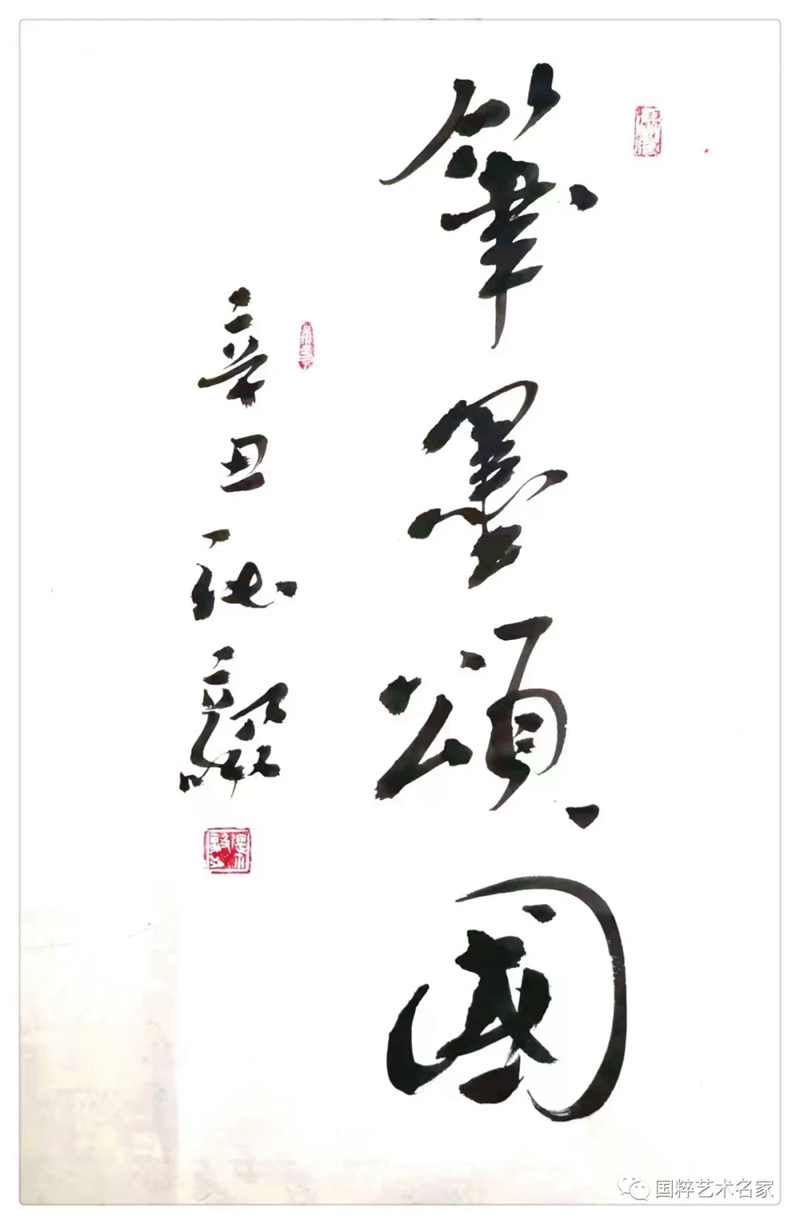 筆墨頌國
辛丑
国粹艺术名家